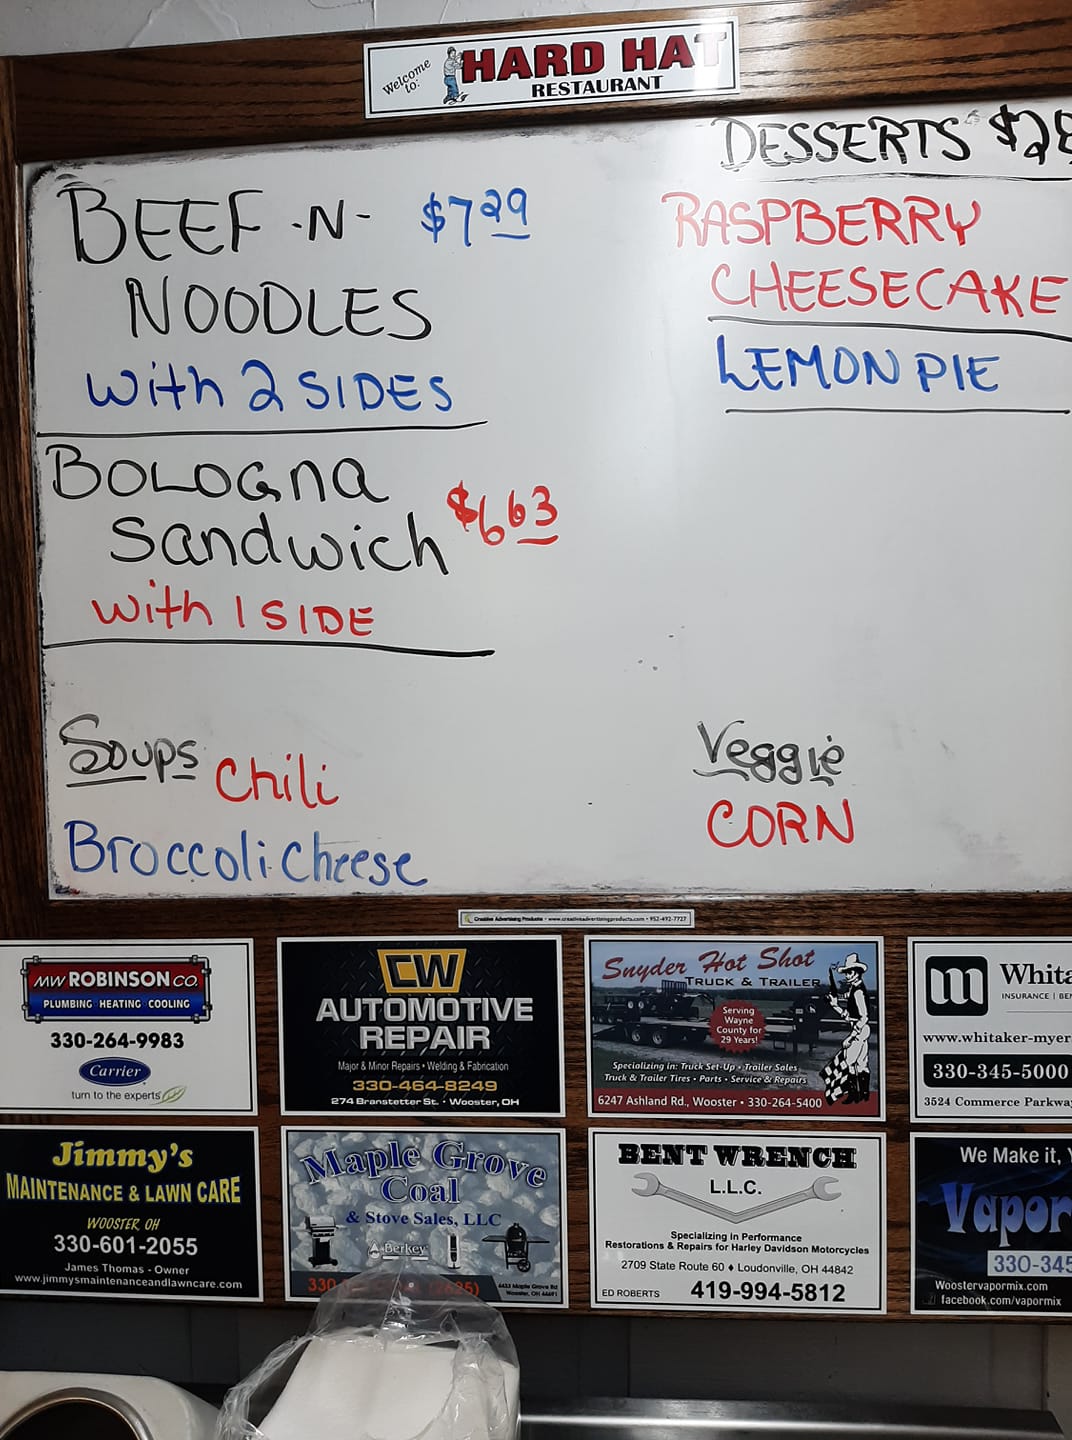 Welcome to:
HARD HAT
RESTAURANT
DESSERTS
BEEF -N- $7.29
NOODLES
with 2 SIDES
RASPBERRY
CHEESECAKE
LEMON PIE
BOLOGNA
Sandwich $6.63
with 1 SIDE
Soups Chili
Broccoli cheese
Veggie
CORN
Creative Advertising Products • www.creativeadvertisingproducts.com • 952-492-7727
MW ROBINSON CO.
PLUMBING HEATING COOLING
330-264-9983
Carrier
turn to the experts
CW
AUTOMOTIVE
REPAIR
Major & Minor Repairs • Welding & Fabrication
330-464-8249
274 Branstetter St. • Wooster, OH
Snyder Hot Shot
TRUCK & TRAILER
Serving
Wayne
County for
29 Years!
Specializing in: Truck Set-Up • Trailer Sales
Truck & Trailer Tires • Parts • Service & Repairs
6247 Ashland Rd., Wooster • 330-264-5400
m Whita
INSURANCE | BEN
www.whitaker-myer
330-345-5000
3524 Commerce Parkway
Jimmy's
MAINTENANCE & LAWN CARE
WOOSTER OH
330-601-2055
James Thomas - Owner
www.jimmysmaintenanceandlawncare.com
Maple Grove
Coal
& Stove Sales, LLC
Berkey
330
4433 Maple Grove Rd
Wooster, OH 44691
BENT WRENCH
L.L.C.
Specializing in Performance
Restorations & Repairs for Harley Davidson Motorcycles
2709 State Route 60 ♦ Loudonville, OH 44842
ED ROBERTS 419-994-5812
We Make it, Y
Vapor
330-345
Woostervapormix.com
facebook.com/vapormix